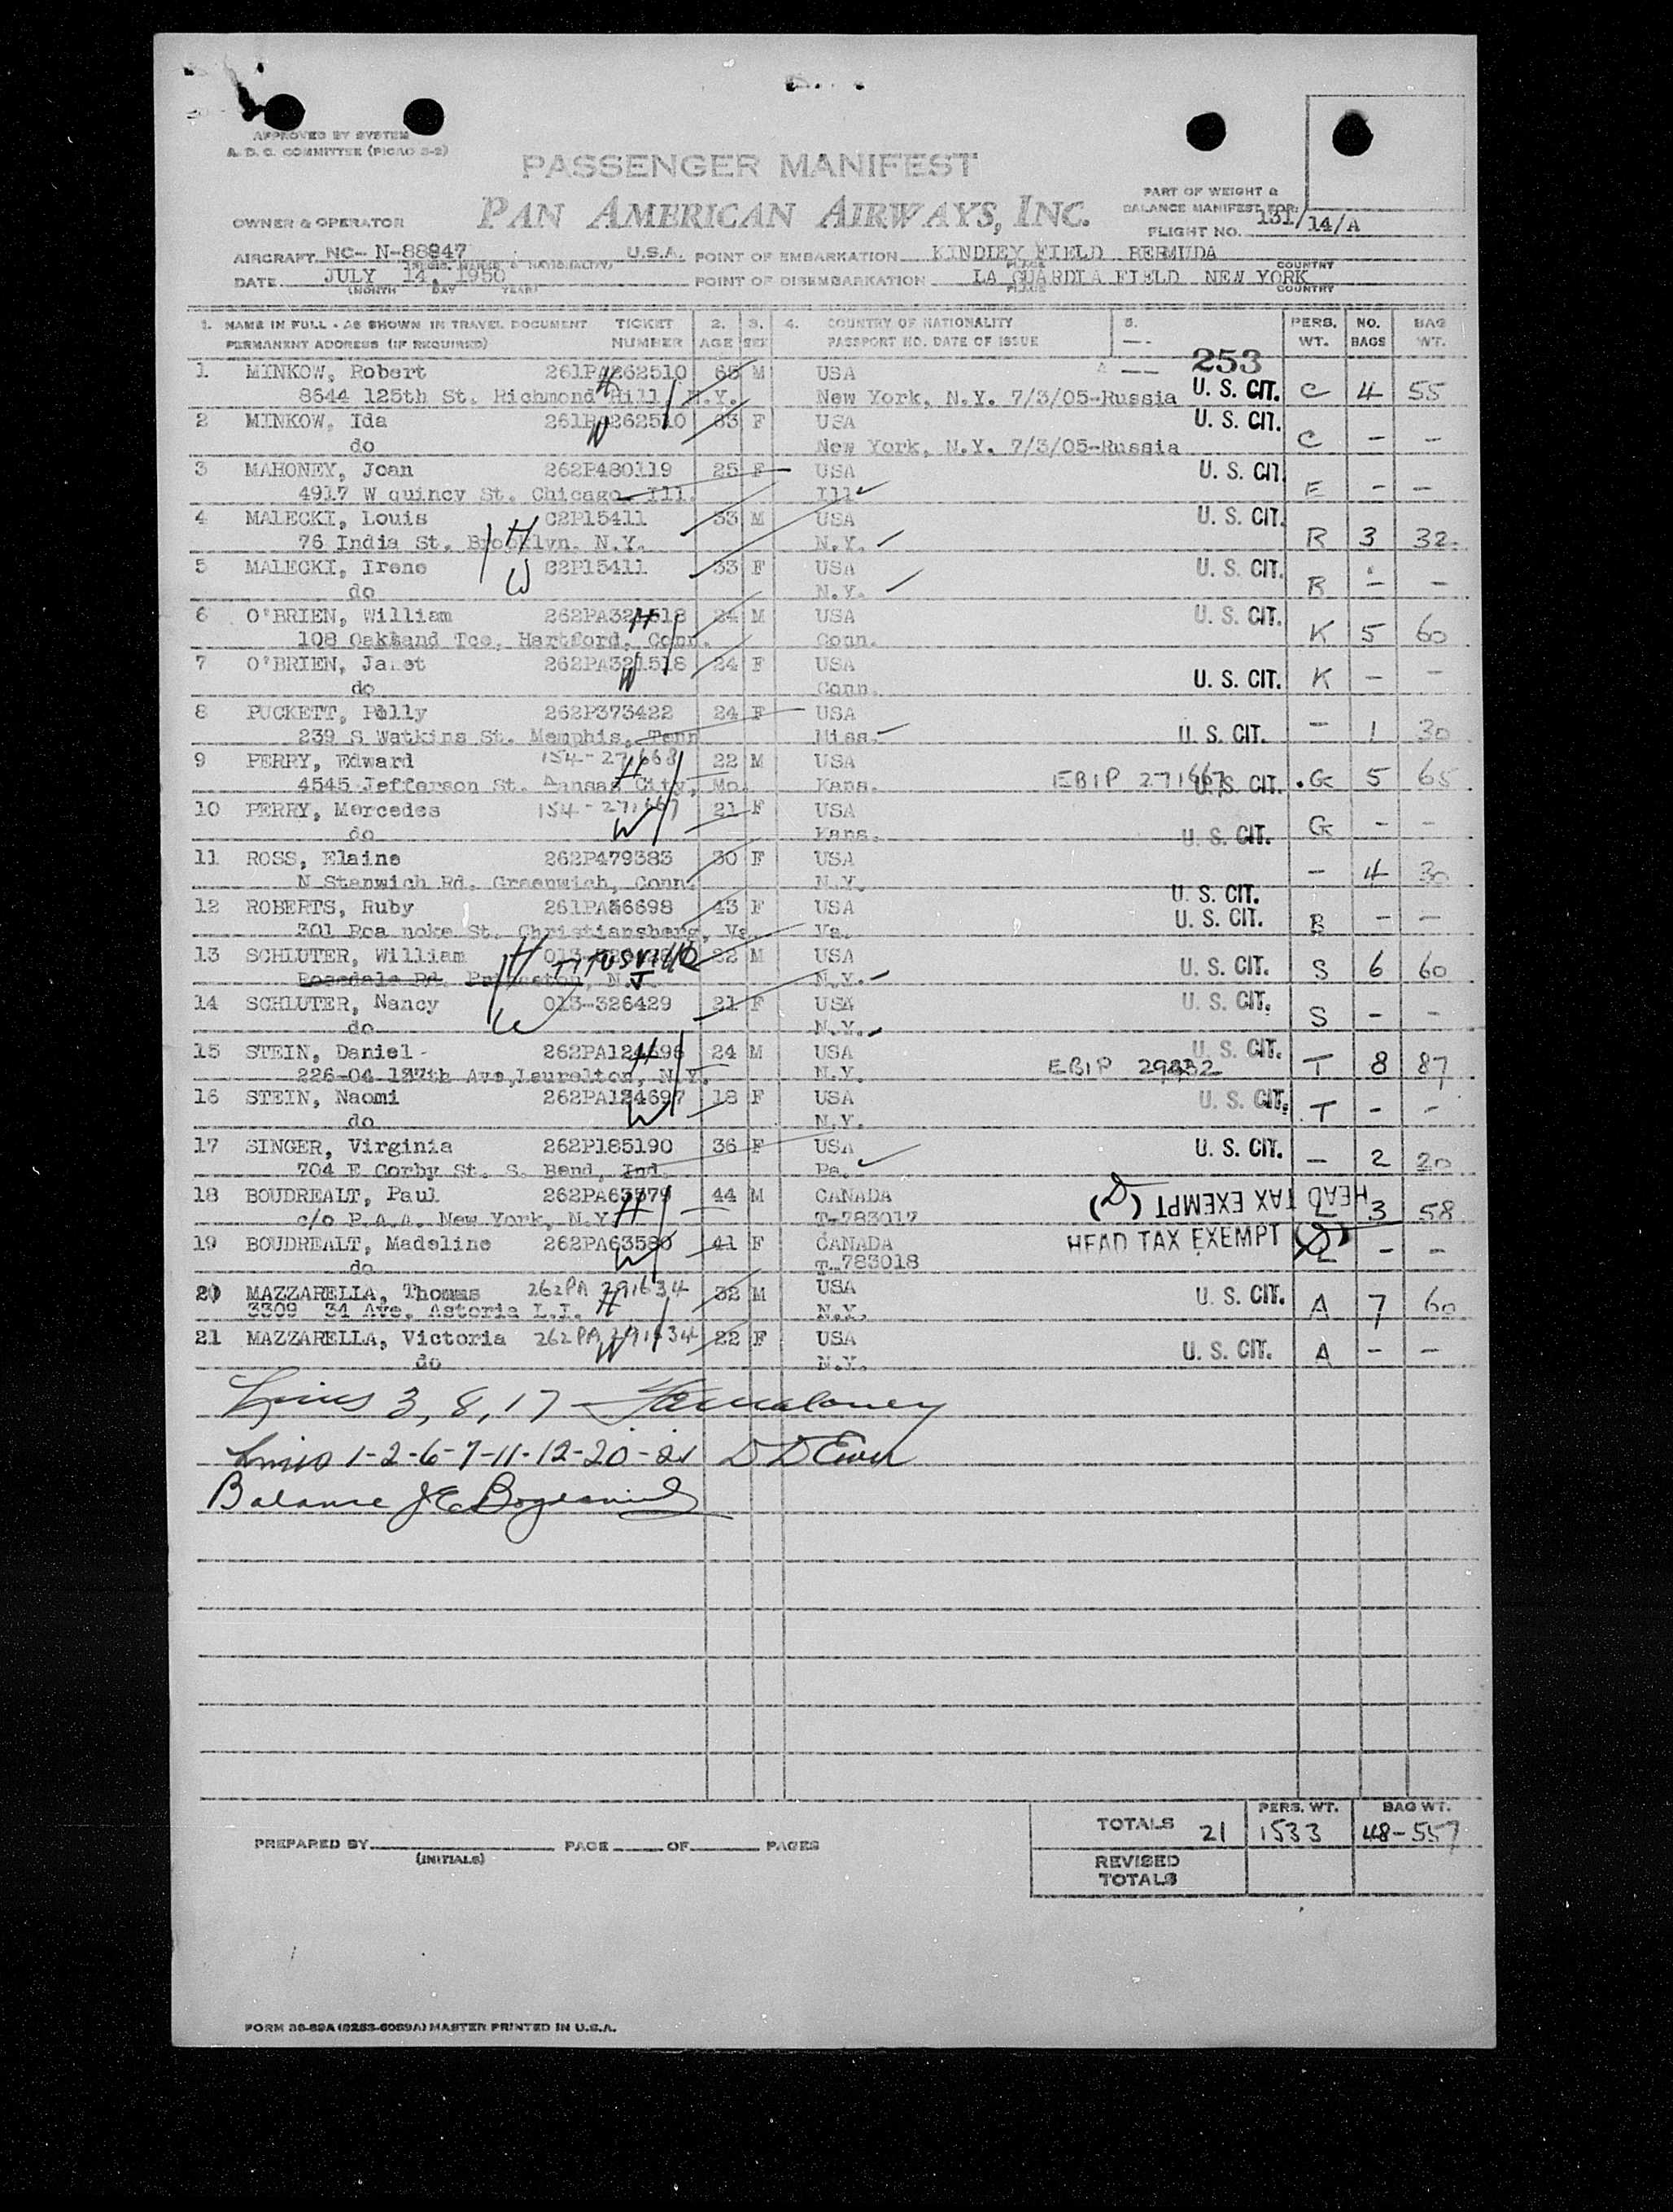 APPROVED BY SYSTEM
A. D. C. COMMITTEE (PICAO 5-2)
PASSENGER MANIFEST
PAN AMERICAN AIRWAYS, INC.
PART OF WEIGHT &
BALANCE MANIFEST FOR:
FLIGHT NO. 131/14/A
OWNER & OPERATOR
AIRCRAFT NC- N-88947 U.S.A. POINT OF EMBARKATION KINDLEY FIELD BERMUDA
PLACE COUNTRY
DATE JULY 14, 1950 POINT OF DISEMBARKATION LA GUARDIA FIELD NEW YORK
(MONTH DAY YEAR) PLACE COUNTRY
1. NAME IN FULL - AS SHOWN IN TRAVEL DOCUMENT TICKET 2. 3. 4. COUNTRY OF NATIONALITY 5. PERS. NO. BAG
PERMANENT ADDRESS (IF REQUIRED) NUMBER AGE SEX PASSPORT NO. DATE OF ISSUE WT. BAGS WT.
253
1 MINKOW, Robert 261PA262510 65 M USA
8644 125th St. Richmond Hill, N.Y. H New York, N.Y. 7/3/05-Russia U. S. CIT. C 4 55
2 MINKOW, Ida 261PA262510 63 F USA U. S. CIT.
do W New York, N.Y. 7/3/05-Russia C - -
3 MAHONEY, Joan 262P480119 25 F USA U. S. CIT.
4917 W quincy St. Chicago Ill. Ill - -
4 MALECKI, Louis C2P15411 33 M USA U. S. CIT.
76 India St. Brooklyn. N.Y. H N.Y. R 3 32
5 MALECKI, Irene 33 F USA U. S. CIT.
do W N.Y. R - -
6 O'BRIEN, William 262PA321518 24 M USA U. S. CIT.
108 Oakland Tce, Hartford, Conn. H Conn. K 5 60
7 O'BRIEN, Janet 262PA321518 24 F USA
do W Conn. U. S. CIT. K - -
8 PUCKETT, Polly 262P373422 24 F USA
239 S Watkins St. Memphis, Tenn Miss. U. S. CIT. - 1 30
9 PERRY, Edward 154-271668 22 M USA
4545 Jefferson St. Kansas City, Mo. H Kans. EBIP 271667 U. S. CIT. G 5 65
10 PERRY, Mercedes 154-271667 21 F USA
do W Kans. U. S. CIT. G - -
11 ROSS, Elaine 262P479383 30 F USA
N Stanwich Rd. Greenwich, Conn. N.Y. - 4 30
U. S. CIT.
12 ROBERTS, Ruby 43 F USA
301 Roa noke St. Christiansberg, Va Va. U. S. CIT. B - -
13 SCHLUTER, William 22 M USA
Rosedale Rd. Princeton, N.J. TITUSVILLE H N.Y. U. S. CIT. S 6 60
14 SCHLUTER, Nancy 013-326429 21 F USA U. S. CIT.
do W N.Y. S - -
15 STEIN, Daniel 262PA124696 24 M USA U. S. CIT.
226-04 137th Ave, Laurelton, N.Y. H N.Y. EBIP T 8 87
16 STEIN, Naomi 262PA124697 18 F USA U. S. CIT.
do W N.Y. T - -
17 SINGER, Virginia 262P185190 36 F USA U. S. CIT.
704 E Corby St. S. Bend, Ind. Pa. - 2 20
18 BOUDREALT, Paul 262PA63579 44 M CANADA HEAD TAX EXEMPT (D)
c/o P.A.A. New York, N.Y. H T-783017 L 3 58
19 BOUDREALT, Madeline 262PA63580 41 F CANADA HEAD TAX EXEMPT (D)
do W T-783018 L - -
20 MAZZARELLA, Thomas 262PA 291634 32 M USA U. S. CIT.
3309 34 Ave, Astoria L.I. H N.Y. A 7 60
21 MAZZARELLA, Victoria 262PA 291634 22 F USA
do W N.Y. U. S. CIT. A - -
Lines 3, 8, 17
Lines 1-2-6-7-11-12-20-21
Balance
TOTALS 21 PERS. WT. 1533 BAG WT. 48-557
REVISED
TOTALS
PREPARED BY PAGE OF PAGES
(INITIALS)
FORM 36-89A (9263-6089A) MASTER PRINTED IN U.S.A.